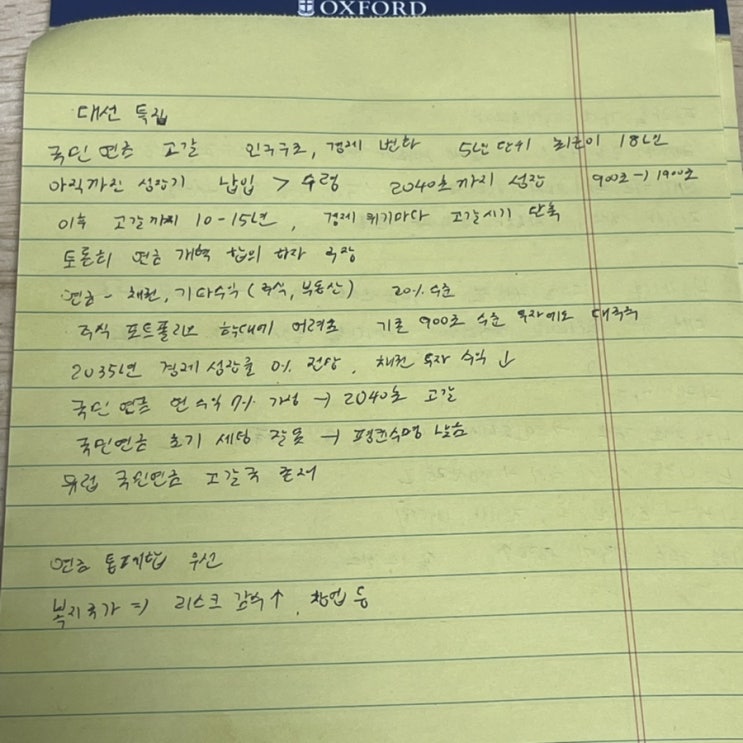 OXFORD
대선 특집
국민 연금 고갈 인구구조, 경제 변화 5년 단위 최근이 18년
아직까진 성장기 납입 > 수령 2040년까지 성장 900조 → 1900조
이후 고갈까지 10-15년, 경제 위기마다 고갈시기 단축
토론회 연금 개혁 합의 하자 주장
연금 - 채권, 기타수익 (주식, 부동산) 20% 수준
주식 포트폴리오 확대에 어려움 기존 900조 수준 투자에도
2035년 경제 성장률 0% 전망, 채권 투자 수익 ↓
국민 연금 연 수익 7% 가정 → 2040년 고갈
국민연금 초기 세팅 잘못 → 평균수명 낮음
유럽 국민연금 고갈국 존재
연금 통폐합 우선
복지국가 ⇒ 리스크 감수 ↑, 창업 등